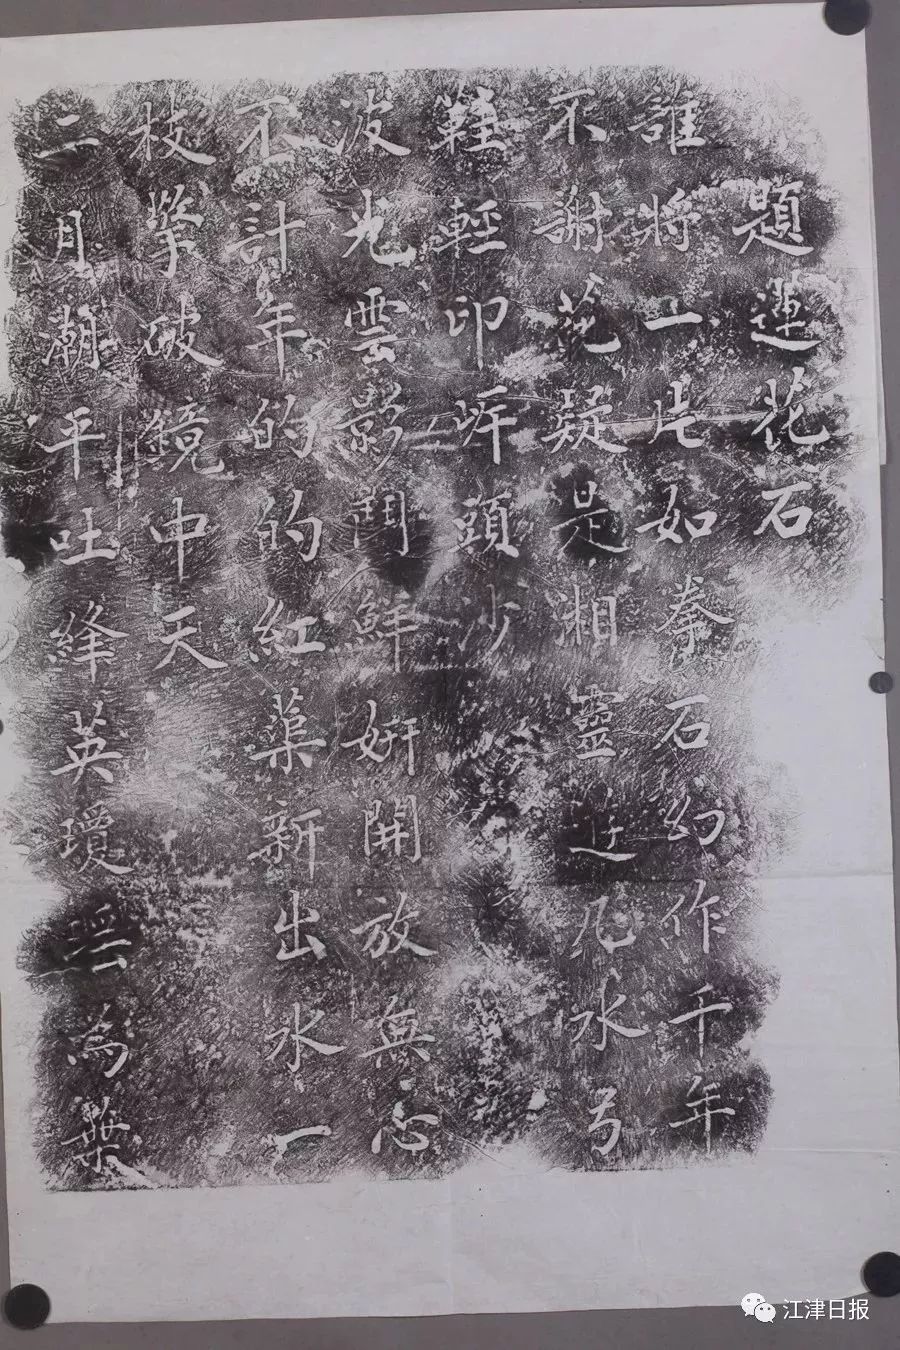 題蓮花石
誰將一片如拳石幻作千年
不謝花疑是湘靈遊几水弓
鞋輕印岸頭沙
波光雲影鬥鮮妍開放無心
不計年的的紅蕖新出水一
枝擎破鏡中天
二月潮平吐絳英瓊雲為葉
江津日报